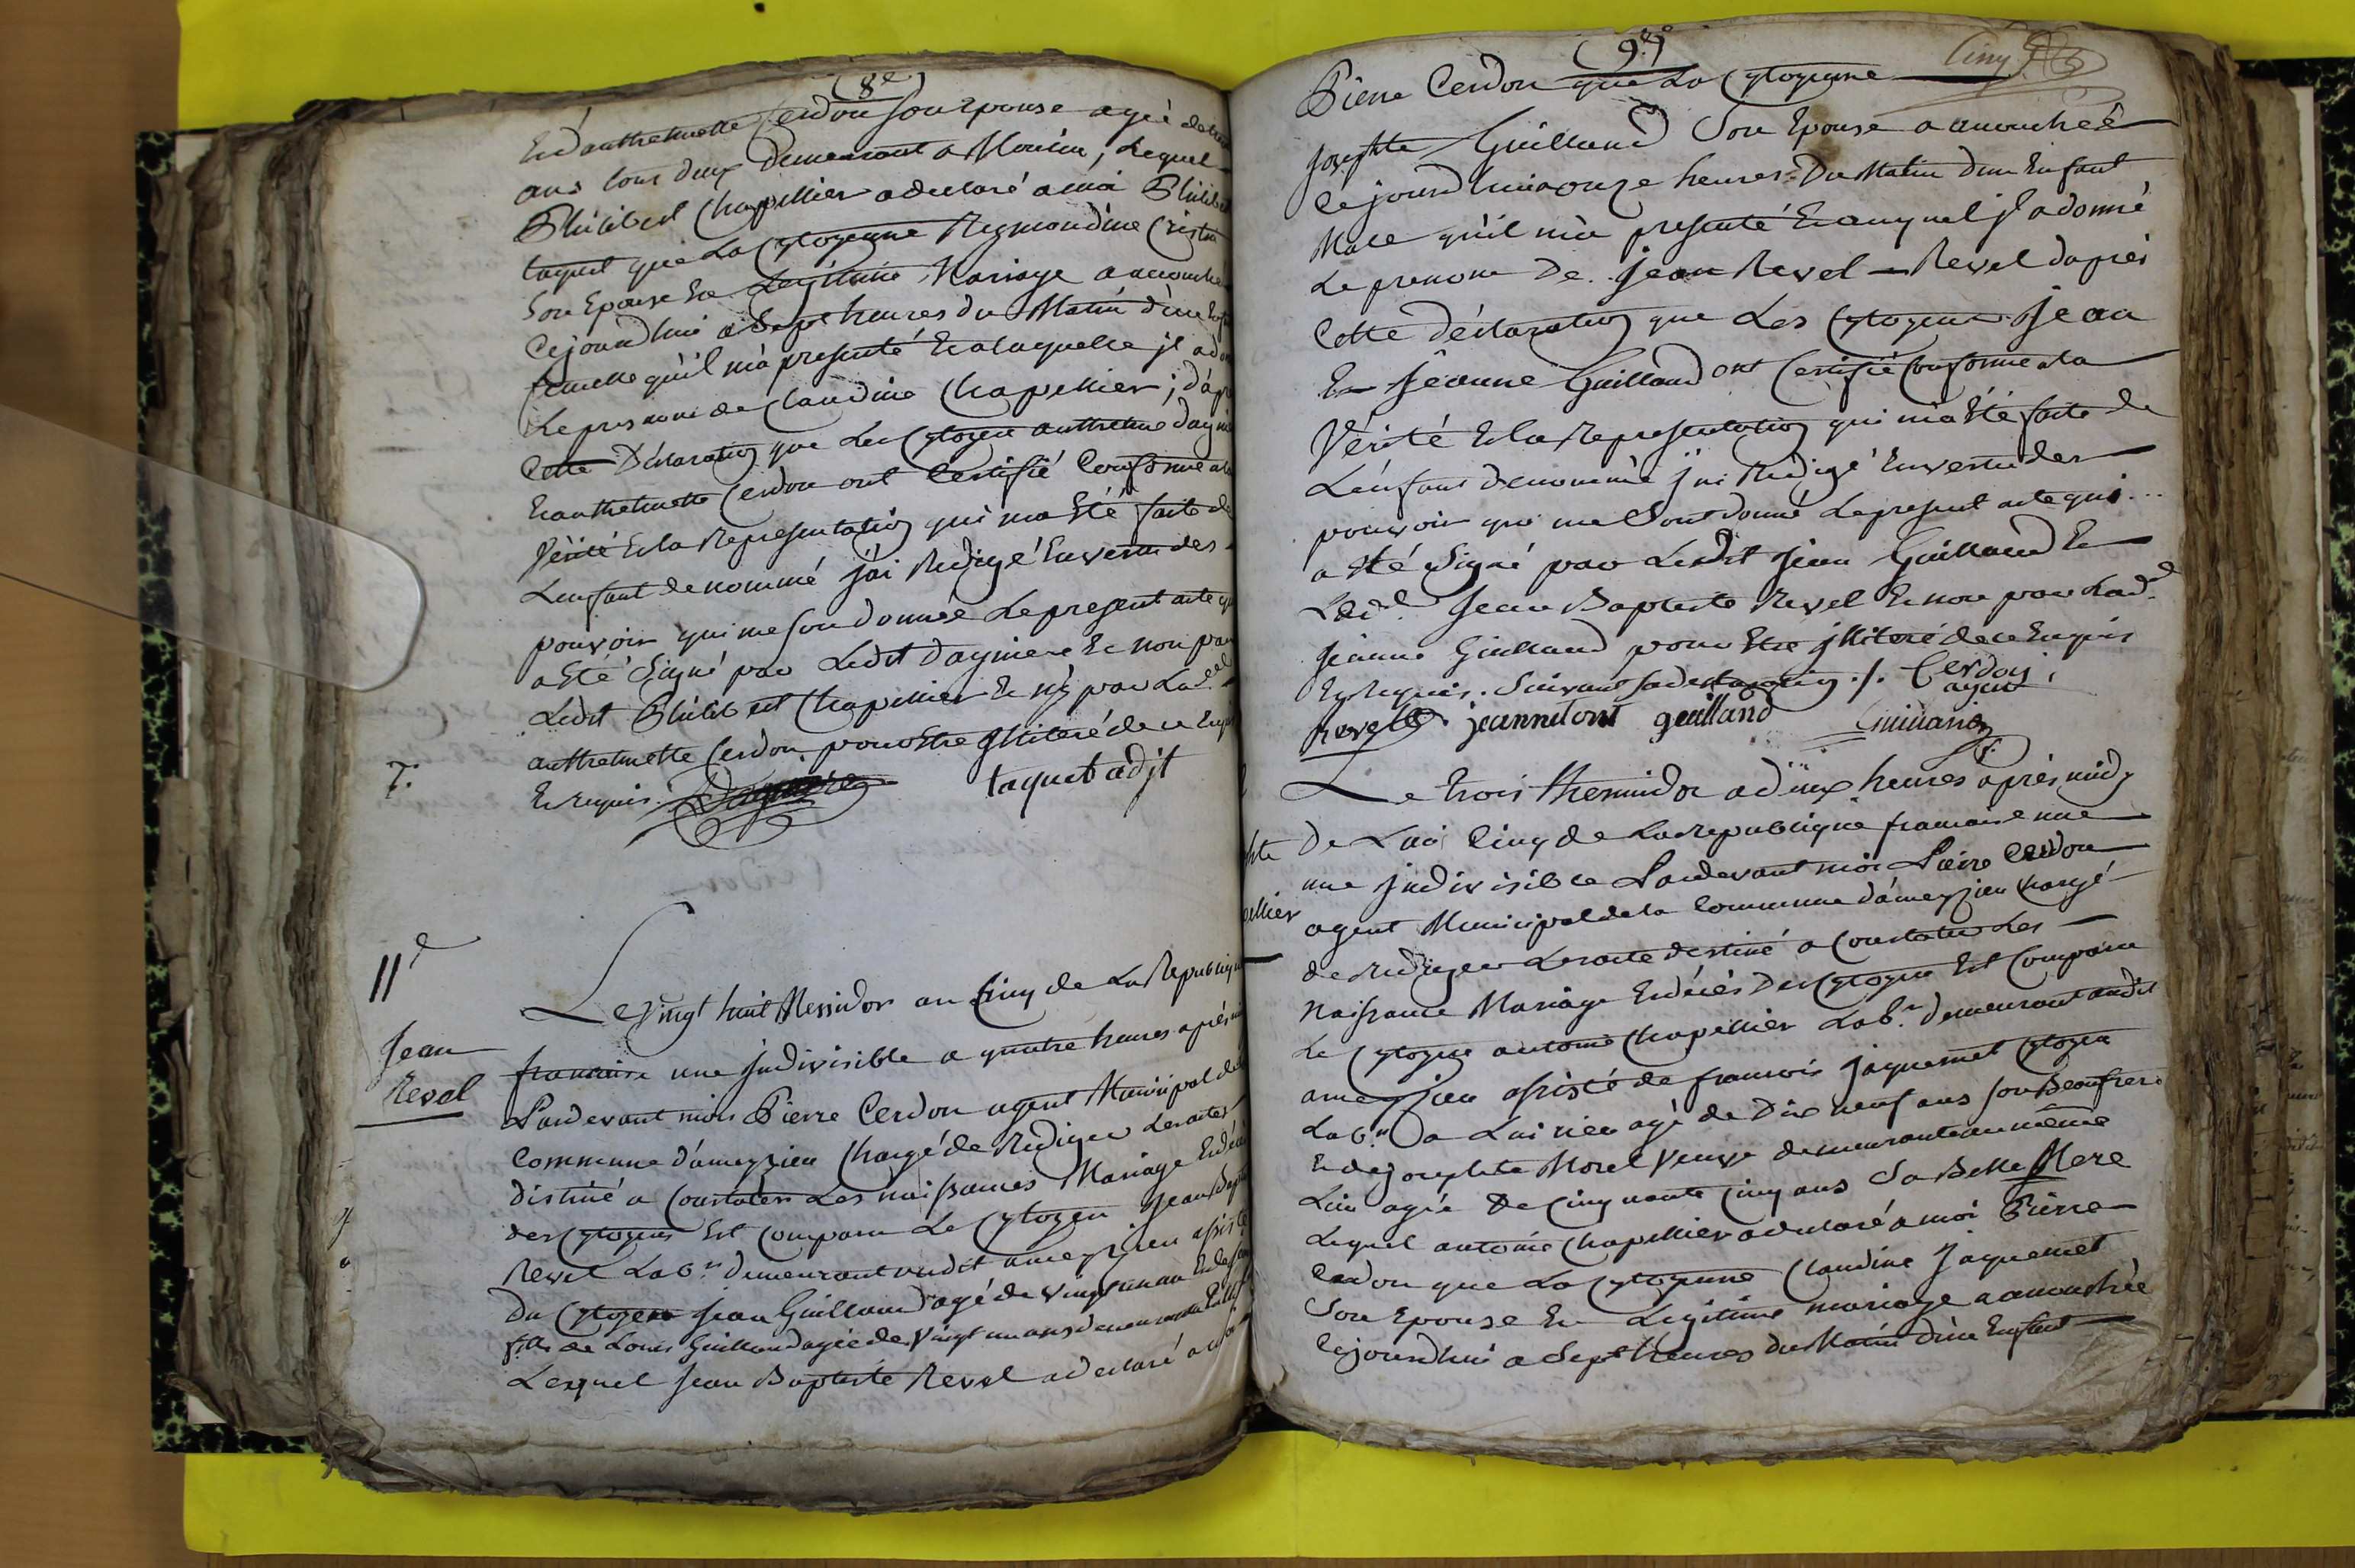 (8e)
Et d'anthelmette Cerdon son Epouse agée de
ans tous deux demeurant a Moiriu, Lequel
Philibert Chapellier a declaré a moi Philibert
taquet que La Cytoyenne Reymondine Cristin
Son Epouse En Legitime Mariage a accouche
Cejourd'hui a Sept heures du Matin d'un Enf
femelle qu'il m'a presenté Et a laquelle jl a do
Le prenom de Claudine Chapellier; d'apr
Cette Déclaration que Les Cytoyen anthelme dagni
Et anthelmette Cerdon ont Certifié Conforme a la
Vérité Et la Representation qui ma Eté faite de
Lenfant denommé j'ai Redigé En vertu des
pouvoir qui me son donnée Le present acte qu
a Eté Signé par Ledit dagniere Et non par
Ledit Philibert Chapellier Et ny par Lad.
anthelmette Cerdon pour Etre jlliteré de ce Enq
7.
Et requis.
taquet adjt
11e
Jean
Revel
Le Vingt huit Messidor an Cinq de La Republique
francaise une Indivisible a quatre heures aprés mi
Pardevant moi Pierre Cerdon agent Municipal de
Commune d'ameyzieu Chargé de Rediger Les actes
distiné a Constater Les naissances Mariage Et décé
des Cytoyens Est Comparu Le Cytoyen Jean Bapt
Revel Lab.r demeurant audit ameyzieu assisté
Du Cytoyen Jean Guilland agé de Vingt un an Et de
fille de Louis Guilland agée de Vingt un ans demeurant
Lequel Jean Baptiste Revel a declaré a
(9e)
Cinq
Pierre Cerdon que La Cytoyenne
Josephte Guilland Son Epouse a accouchée
Cejourd'hui a onze heures Du Matin d'un Enfant
Male qu'il m'a presenté Et auquel jl a donné
Le prenom De Jean Revel Revel d'aprés
Cette Déclaration que Les Cytoyens Jean
Et Jeanne Guilland ont Certifié Conforme a la
Vérité Et la Representation qui m'a Eté faite de
Lénfant denommé j'ai Redigé En vertu des
pouvoir qui me Sont donné Le present acte qui
a Eté Signé par Ledit Jean Guilland Et
Led.t Jean Baptiste Revel Et non par Lad.e
Jeanne Guilland pour Etre jlliteré de ce Enquis
Et Requis. Suivant Sa declaration ./. Cerdon
agent
Revel jeannetont guilland Guilland
Le trois thermidor a deux heures aprés midy
De L'an Cinq de La Republique francaise une
une jndivisible Pardevant moi Pierre Cerdon
agent Municipal de la Commune d'ameyzieu Chargé
ellier
de Rediger Les acte destiné a Constater Les
Naissance Mariage Et décés Des Cytoyen Est Comparu
Le Cytoyen antoine Chapellier Lab.r demeurant audit
ameyzieu assisté de francois Jaquemet Cytoyen
Lab.r a Luirieu agé de Dix neuf ans Son Beaufrere
Et de Josephte Morel Veuve demeurante au même
Lieu agée De Cinquante Cinq ans Sa Belle Mere
Lequel antoine Chapellier a declaré a moi Pierre
Cerdon que La Cytoyenne Claudine Jaquemet
Son Epouse En Legitime mariage a accouchée
Cejourdhui a Sept heures du Matin d'un Enfant